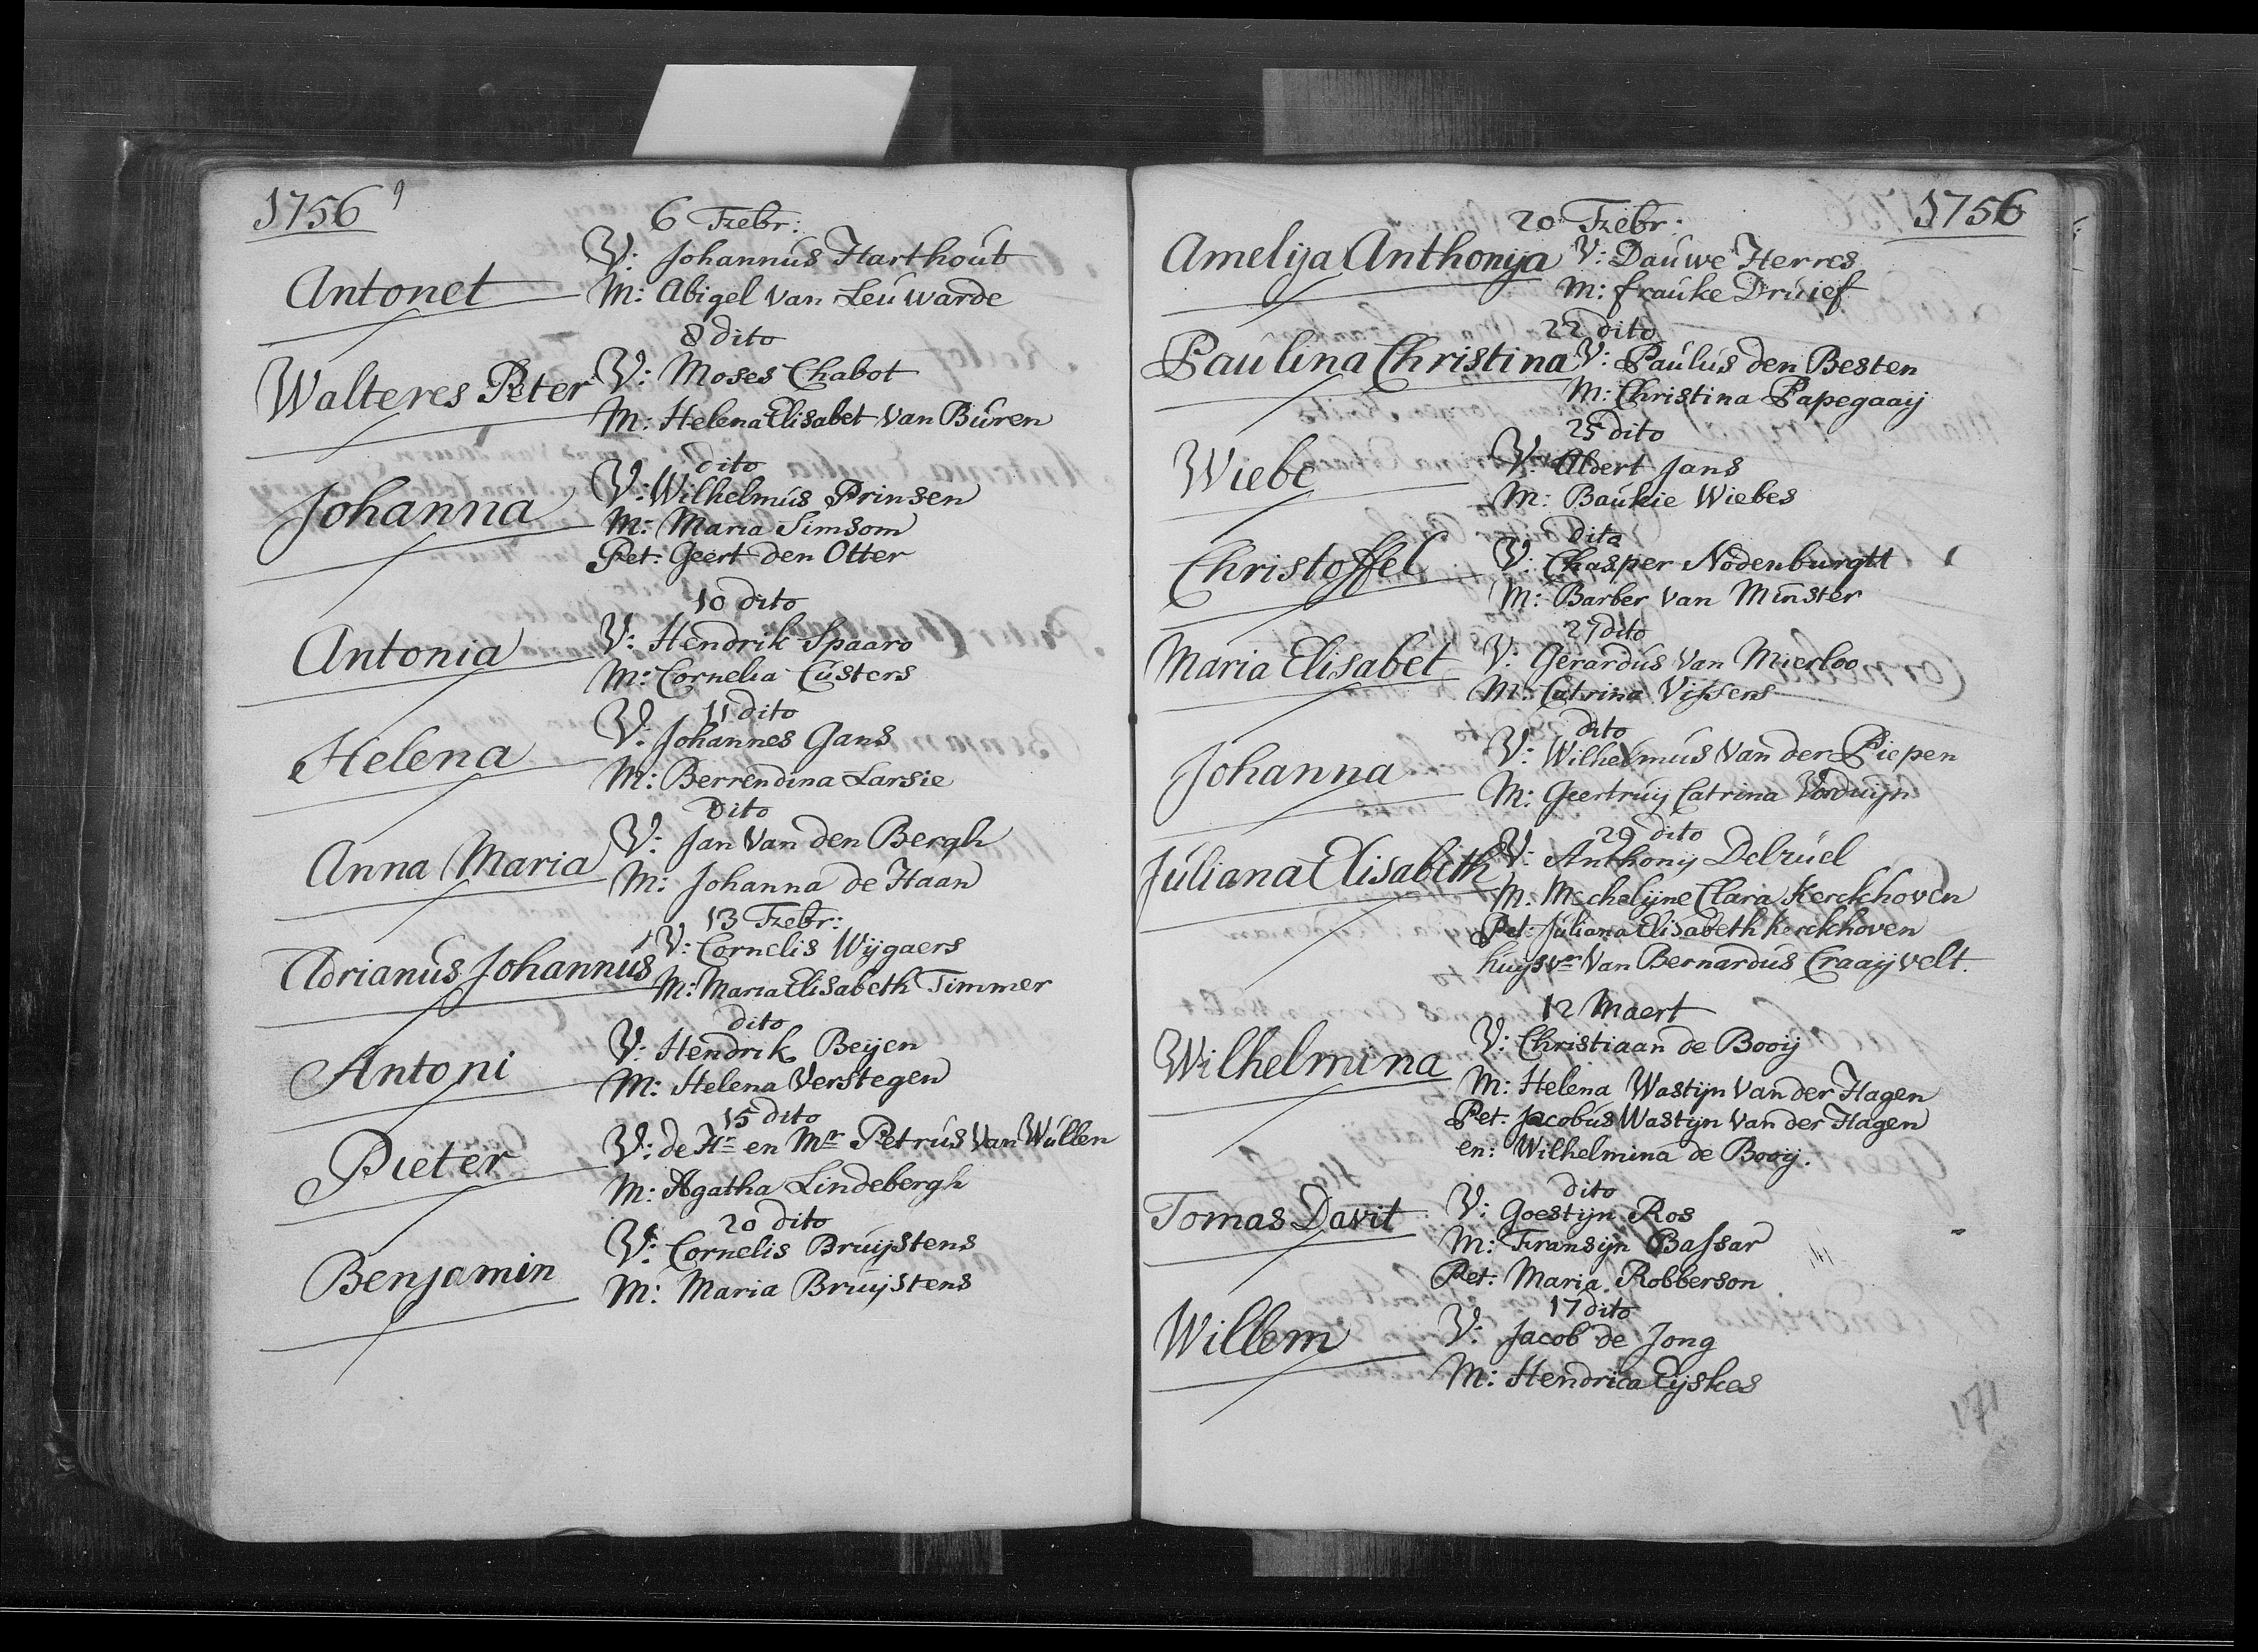 1756
6 Febr:
Antonet
V: Johannus Harthout
M: Abigel van Leuwarde
8 dito
Walteres Peter
V: Moses Chabot
M: Helena Elisabet van Buren
dito
Johanna
V: Wilhelmus Prinsen
M: Maria Simsom
Pet: Geert den Otter
10 dito
Antonia
V: Hendrik Spaaro
M: Cornelia Custers
11 dito
Helena
V: Johannes Gans
M: Berrendina Larsie
Dito
Anna Maria
V: Jan Van den Bergh
M: Johanna de Haan
13 Febr:
Adrianus Johannus
V: Cornelis Wijgaers
M: Maria Elisabeth Timmer
dito
Antoni
V: Hendrik Beijen
M: Helena Verstegen
15 dito
Pieter
V: de Hr en Mr Petrus Van Wullen
M: Agatha Lindebergh
20 dito
Benjamin
V: Cornelis Bruijstens
M: Maria Bruijstens
1756
20 Febr:
Amelija Anthonija
V: Dauwe Herres
M: frauke Druief
22 dito
Paulina Christina
V: Paulus den Besten
M: Christina Papegaaij
25 dito
Wiebe
V: Aldert Jans
M: Baukie Wiebes
dito
Christoffel
V: Chasper Nodenburgtt
M: Barber van Munster
27 dito
Maria Elisabet
V: Gerardus Van Mierloo
M: Catrina Vissens
dito
Johanna
V: Wilhelmus Van der Piepen
M: Geertruij Catrina Vorduijn
29 dito
Juliana Elisabeth
V: Anthonij Delruel
M: Mechelijne Clara Kerckhoven
Pet: Juliana Elisabeth Kerckhoven
huijsvr Van Bernardus Craaijvelt.
12 Maert
Wilhelmina
V: Christiaan de Booij
M: Helena Wastijn Van der Hagen
Pet: Jacobus Wastijn Van der Hagen
en: Wilhelmina de Booij.
dito
Tomas Davit
V: Goestijn Ros
M: Fransijn Bassar
Pet: Maria Robberson
17 dito
Willem
V: Jacob de Jong
M: Hendrica Eijskes
171